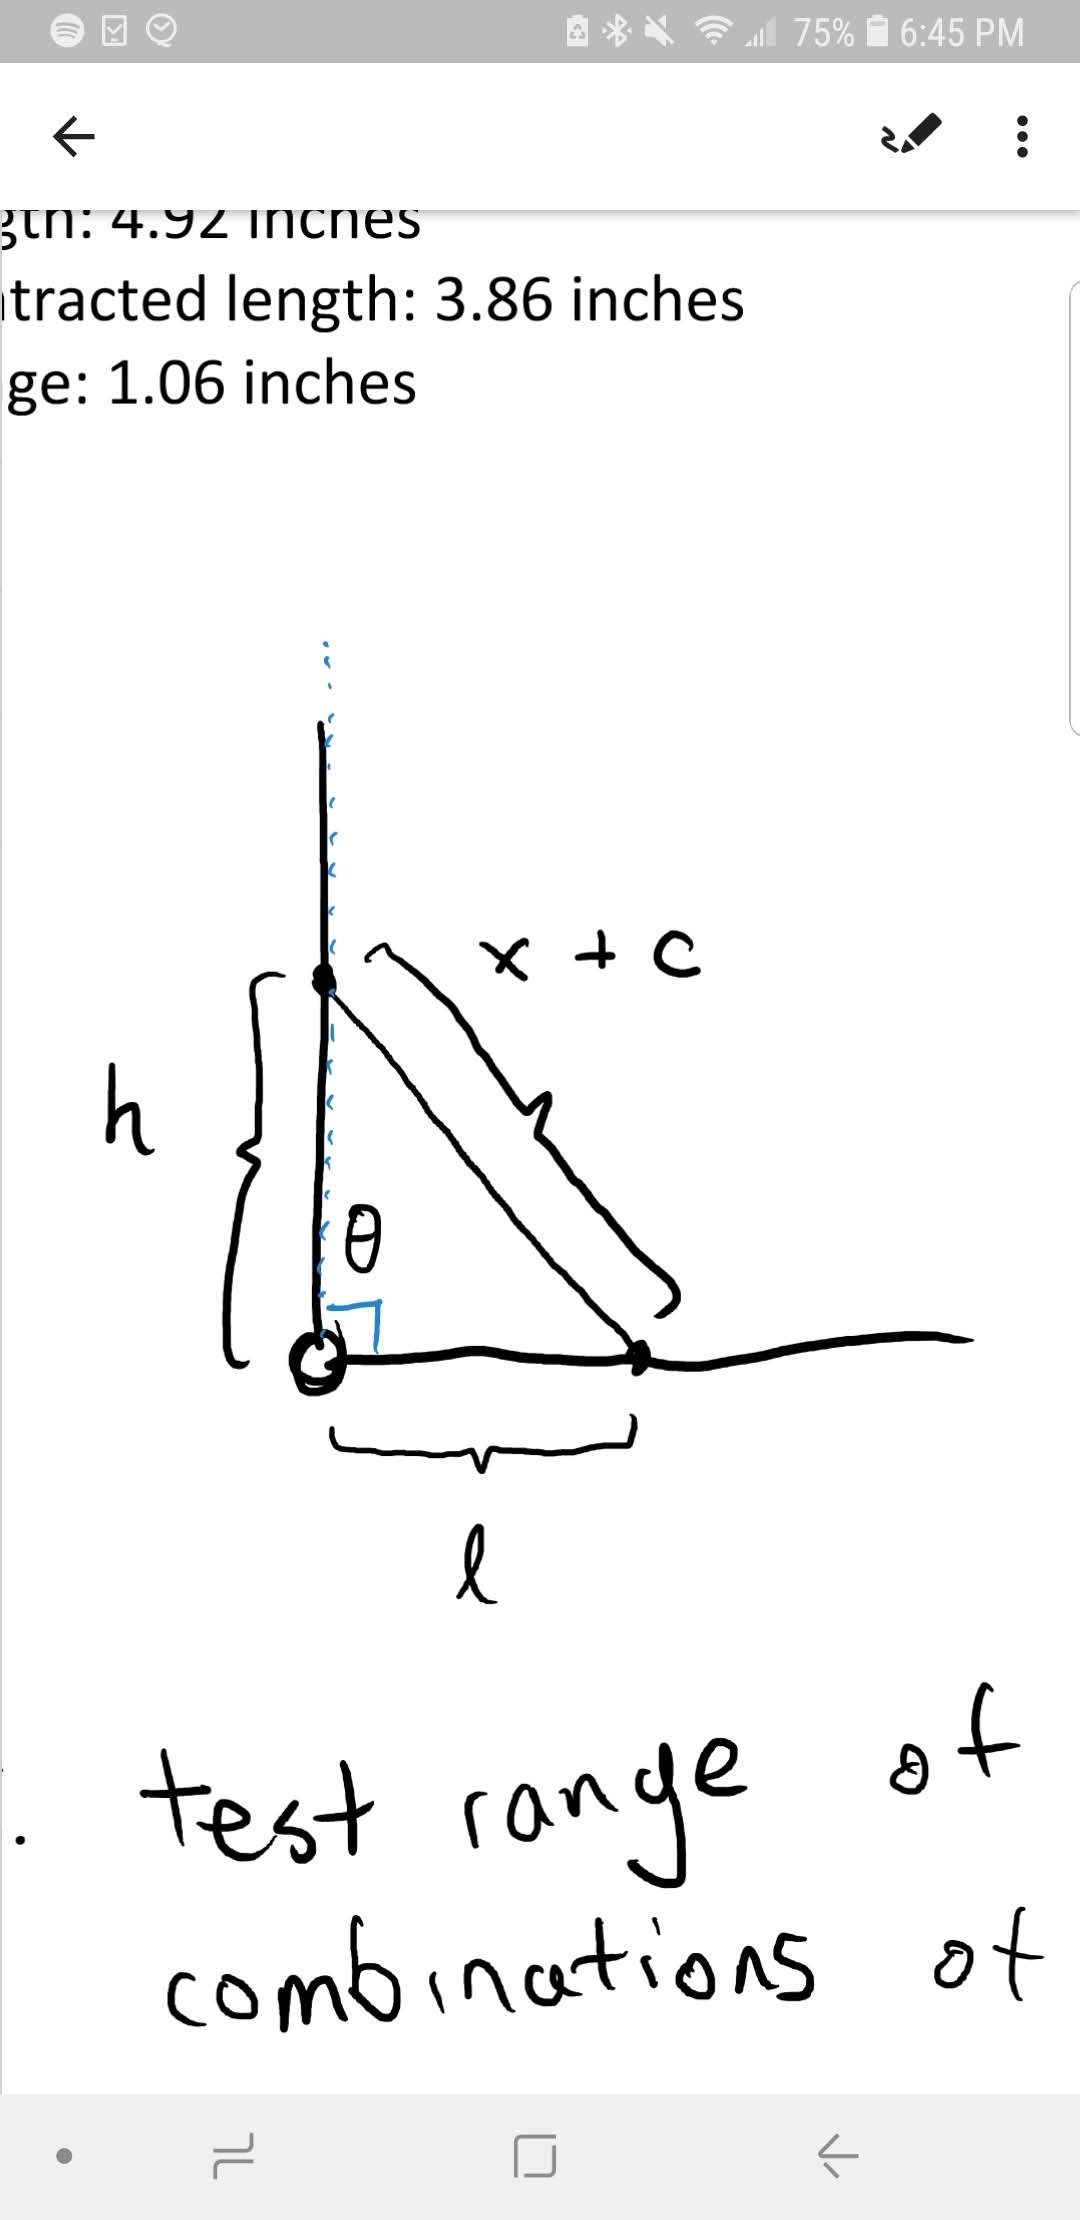 75% 6:45 PM
gth: 4.92 inches
tracted length: 3.86 inches
ge: 1.06 inches
x + c
h
θ
l
. test range of
combinations of